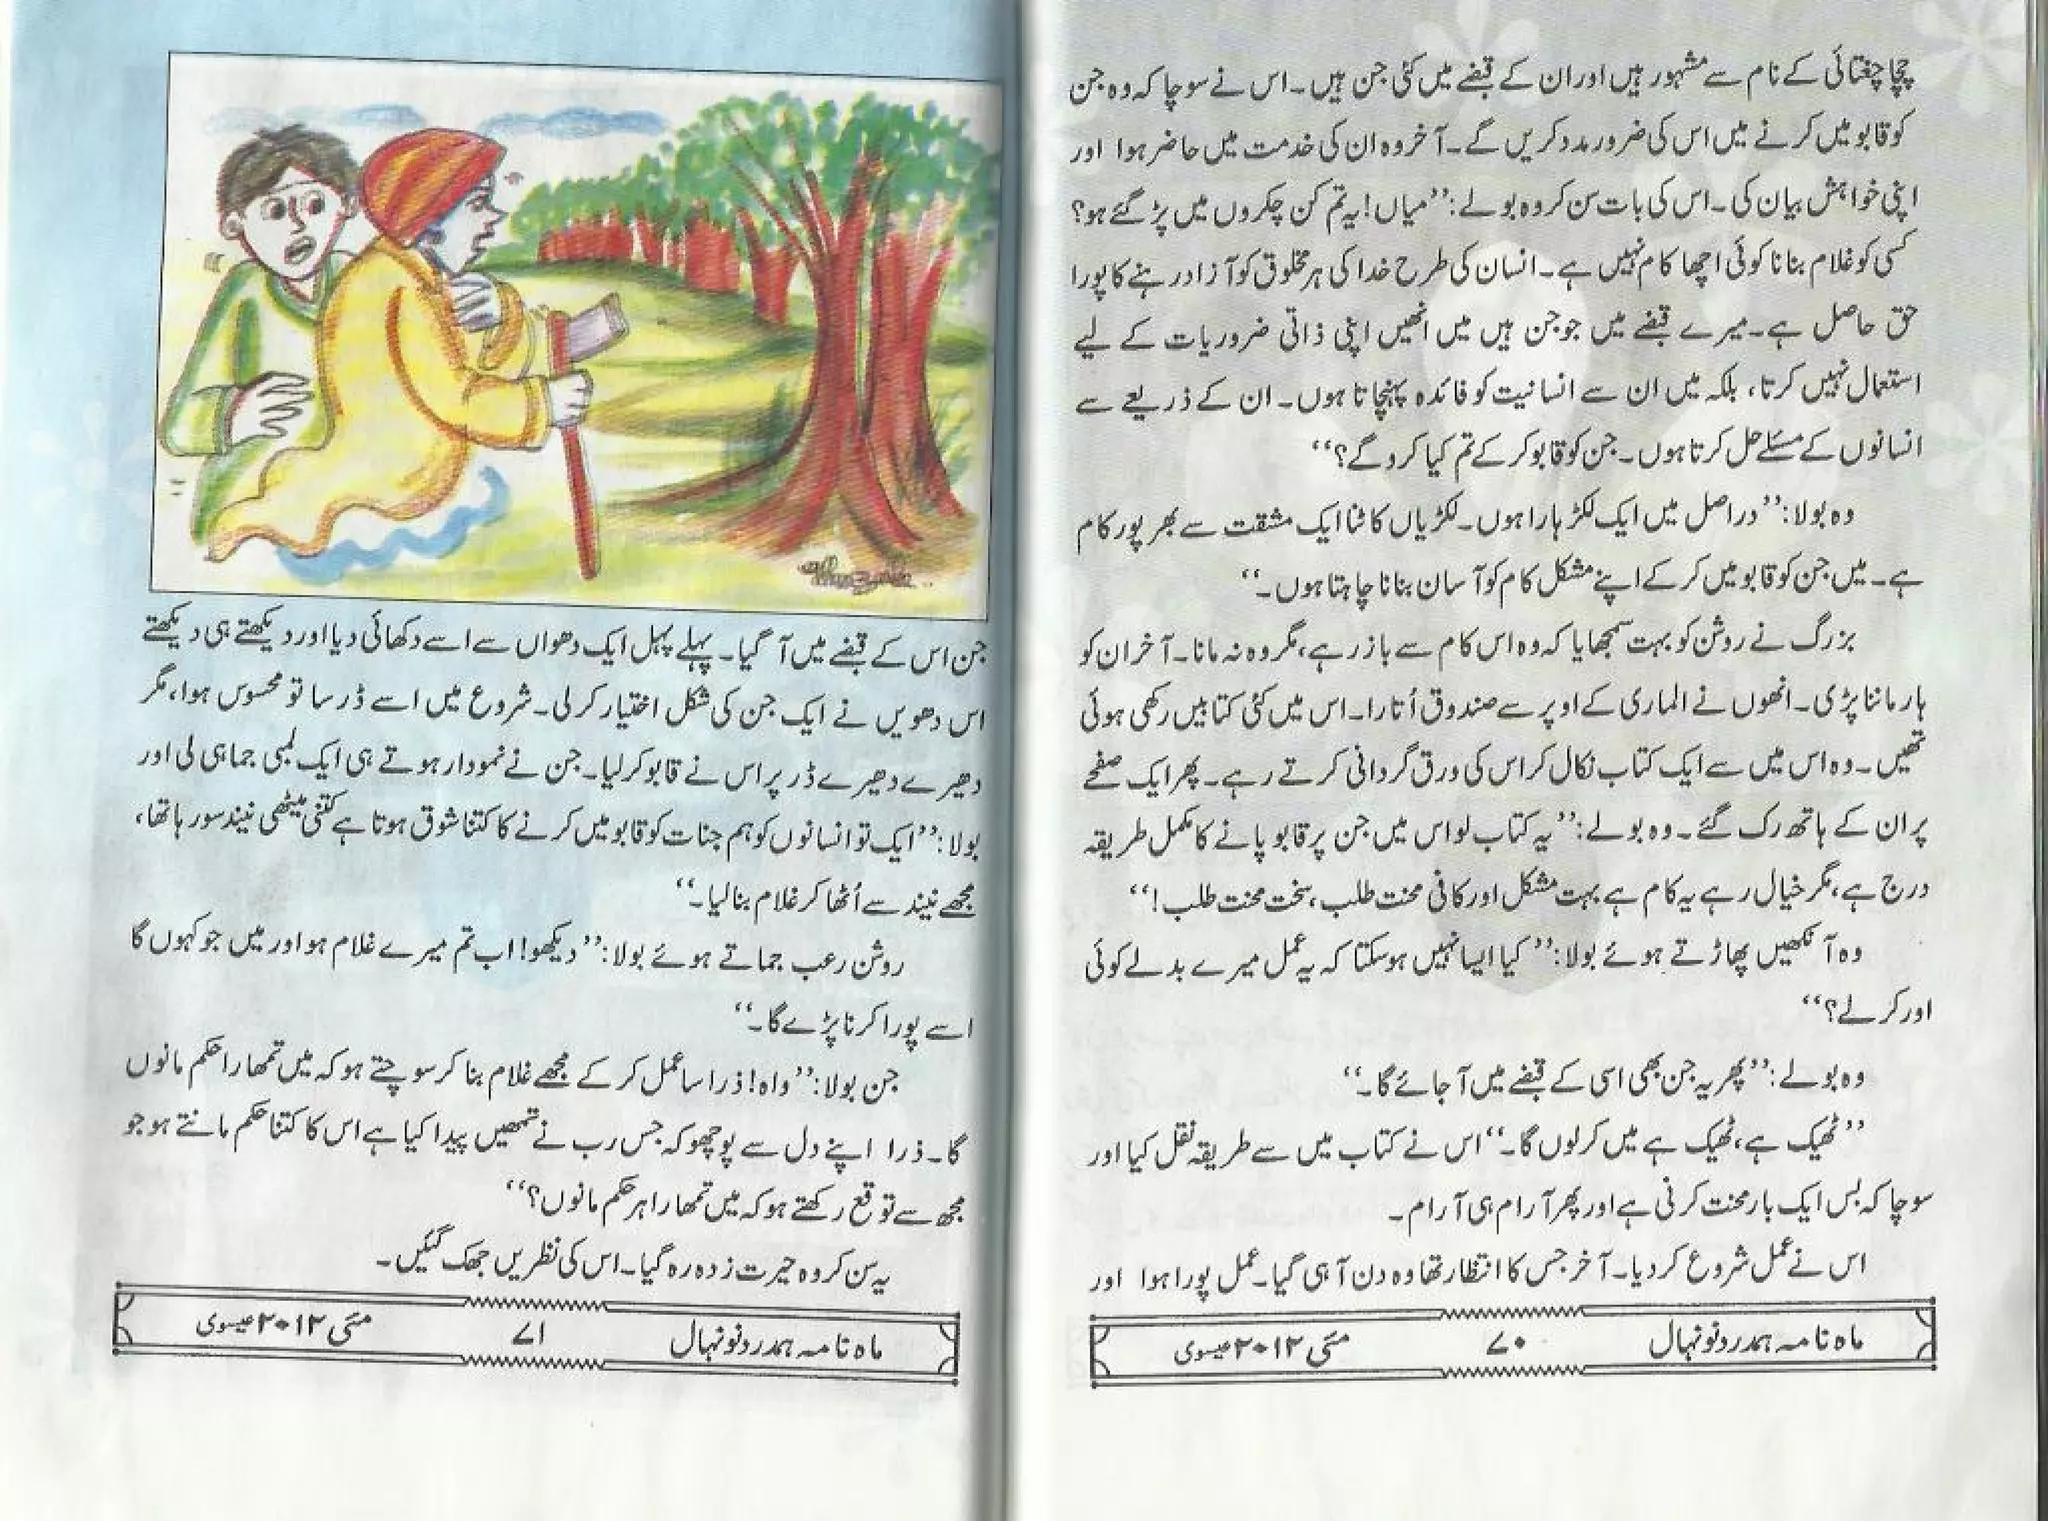 چچا چغتائی کے نام سے مشہور ہیں اور ان کے قبضے میں کئی جن ہیں۔ اس نے سوچا کہ وہ جن
کو قابو میں کرنے میں اس کی ضرور مدد کریں گے۔ آخر وہ ان کی خدمت میں حاضر ہوا اور
اپنی خواہش بیان کی۔ اس کی بات سن کر وہ بولے: ’’میاں! یہ تم کن چکروں میں پڑ گئے ہو؟
کسی کو غلام بنانا کوئی اچھا کام نہیں ہے۔ انسان کی طرح خدا کی ہر مخلوق کو آزاد رہنے کا پورا
حق حاصل ہے۔ میرے قبضے میں جو جن ہیں میں انھیں اپنی ذاتی ضروریات کے لیے
استعمال نہیں کرتا، بلکہ میں ان سے انسانیت کو فائدہ پہنچاتا ہوں۔ ان کے ذریعے سے
انسانوں کے مسئلے حل کرتا ہوں۔ جن کو قابو کر کے تم کیا کرو گے؟‘‘
وہ بولا: ’’دراصل میں ایک لکڑہارا ہوں۔ لکڑیاں کاٹنا ایک مشقت سے بھرپور کام
ہے۔ میں جن کو قابو میں کر کے اپنے مشکل کام کو آسان بنانا چاہتا ہوں۔‘‘
بزرگ نے روشن کو بہت سمجھایا کہ وہ اس کام سے باز رہے، مگر وہ نہ مانا۔ آخر ان کو
ہار ماننا پڑی۔ انھوں نے الماری کے اوپر سے صندوق اُتارا۔ اس میں کئی کتابیں رکھی ہوئی
تھیں۔ وہ اس میں سے ایک کتاب نکال کر اس کی ورق گردانی کرتے رہے۔ پھر ایک صفحے
پر ان کے ہاتھ رک گئے۔ وہ بولے: ’’یہ کتاب لو اس میں جن پر قابو پانے کا مکمل طریقہ
درج ہے، مگر خیال رہے یہ کام ہے بہت مشکل اور کافی محنت طلب، سخت محنت طلب!‘‘
وہ آنکھیں پھاڑتے ہوئے بولا: ’’کیا ایسا نہیں ہوسکتا کہ یہ عمل میرے بدلے کوئی
اور کر لے؟‘‘
وہ بولے: ’’پھر یہ جن بھی اسی کے قبضے میں آ جائے گا۔‘‘
’’ٹھیک ہے، ٹھیک ہے میں کرلوں گا۔‘‘ اس نے کتاب میں سے طریقہ نقل کیا اور
سوچا کہ بس ایک بار محنت کرنی ہے اور پھر آرام ہی آرام۔
اس نے عمل شروع کر دیا۔ آخر جس کا انتظار تھا وہ دن آ ہی گیا۔ عمل پورا ہوا اور
ماہ نامہ ہمدرد نونہال ۷۰ مئی ۲۰۱۲ عیسوی
جن اس کے قبضے میں آ گیا۔ پہلے پہل ایک دھواں سے اسے دکھائی دیا اور دیکھتے ہی دیکھتے
اس دھویں نے ایک جن کی شکل اختیار کرلی۔ شروع میں اسے ڈر سا تو محسوس ہوا، مگر
دھیرے دھیرے ڈر پر اس نے قابو کرلیا۔ جن نے نمودار ہوتے ہی ایک لمبی جماہی لی اور
بولا: ’’ایک تو انسانوں کو ہم جنات کو قابو میں کرنے کا کتنا شوق ہوتا ہے کتنی میٹھی نیند سو رہا تھا،
مجھے نیند سے اُٹھا کر غلام بنا لیا۔‘‘
روشن رعب جماتے ہوئے بولا: ’’دیکھو! اب تم میرے غلام ہو اور میں جو کہوں گا
اسے پورا کرنا پڑے گا۔‘‘
جن بولا: ’’واہ! ذرا سا عمل کر کے مجھے غلام بنا کر سوچتے ہو کہ میں تمھارا حکم مانوں
گا۔ ذرا اپنے دل سے پوچھو کہ جس رب نے تمھیں پیدا کیا ہے اس کا کتنا حکم مانتے ہو جو
مجھ سے توقع رکھتے ہو کہ میں تمھارا ہر حکم مانوں؟‘‘
یہ سن کر وہ حیرت زدہ رہ گیا۔ اس کی نظریں جھک گئیں۔
ماہ نامہ ہمدرد نونہال ۷۱ مئی ۲۰۱۲ عیسوی